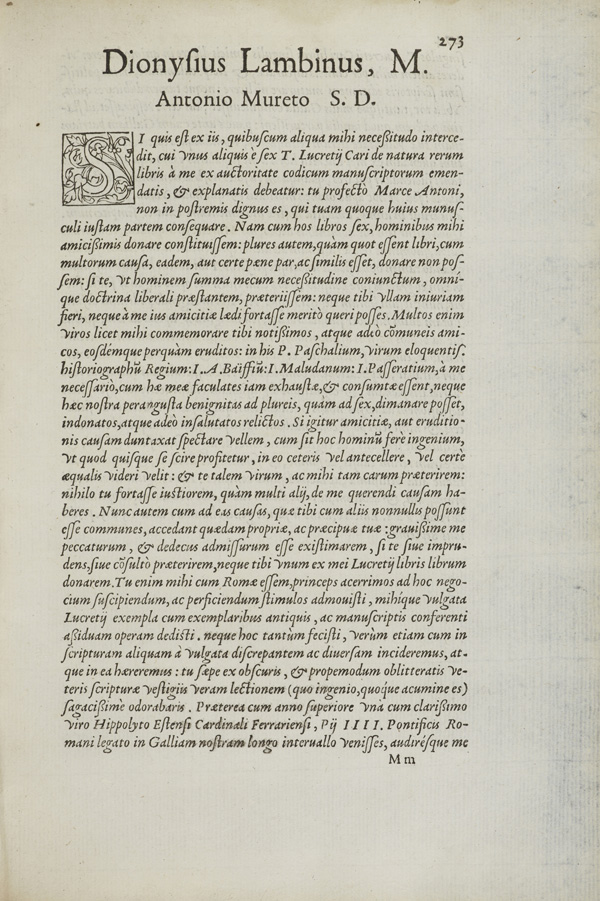 273
Dionyſius Lambinus, M.
Antonio Mureto S. D.
SI quis eſt ex iis, quibuſcum aliqua mihi neceßitudo interce-
dit, cui vnus aliquis è ſex T. Lucretij Cari de natura rerum
libris à me ex auctoritate codicum manuſcriptorum emen-
datis, & explanatis debeatur: tu profectò Marce Antoni,
non in poſtremis dignus es, qui tuam quoque huius munuſ-
culi iuſtam partem conſequare. Nam cum hos libros ſex, hominibus mihi
amicißimis donare conſtituiſſem: plures autem, quàm quot eſſent libri, cum
multorum cauſa, eadem, aut certe pæne par, ac ſimilis eſſet, donare non poſ-
ſem: ſi te, vt hominem ſumma mecum neceßitudine coniunctum, omní-
que doctrina liberali præſtantem, præteriiſſem: neque tibi vllam iniuriam
fieri, neque à me ius amicitiæ lædi fortaſſe meritò queri poſſes. Multos enim
viros licet mihi commemorare tibi notißimos, atque adeò cōmuneis ami-
cos, eoſdémque perquàm eruditos: in his P. Paſchalium, virum eloquentiſ.
hiſtoriographū Regium: I. A. Baïffiū: I. Maludanum: I. Paſſeratium, à me
neceſſariò, cum hæ meæ facultates iam exhauſtæ, & conſumtæ eſſent, neque
hæc noſtra peranguſta benignitas ad plureis, quàm ad ſex, dimanare poſſet,
indonatos, atque adeò inſalutatos relictos. Si igitur amicitiæ, aut eruditio-
nis cauſam duntaxat ſpectare vellem, cum ſit hoc hominū ferè ingenium,
vt quod quiſque ſe ſcire profitetur, in eo ceteris vel antecellere, vel certè
æqualis videri velit: & te talem virum, ac mihi tam carum præterirem:
nihilo tu fortaſſe iuſtiorem, quàm multi alij, de me querendi cauſam ha-
beres. Nunc autem cum ad eas cauſas, quæ tibi cum aliis nonnullis poſſunt
eſſe communes, accedant quædam propriæ, ac præcipuæ tuæ: grauißime me
peccaturum, & dedecus admiſſurum eſſe exiſtimarem, ſi te ſiue impru-
dens, ſiue cōſultò præterirem, neque tibi vnum ex mei Lucretij libris librum
donarem. Tu enim mihi cum Romæ eſſem, princeps acerrimos ad hoc nego-
cium ſuſcipiendum, ac perficiendum ſtimulos admouiſti, mihíque vulgata
Lucretij exempla cum exemplaribus antiquis, ac manuſcriptis conferenti
aßiduam operam dediſti. neque hoc tantùm feciſti, verùm etiam cum in
ſcripturam aliquam à vulgata diſcrepantem ac diuerſam incideremus, at-
que in ea hæreremus: tu ſæpe ex obſcuris, & propemodum oblitteratis ve-
teris ſcripturæ veſtigiis veram lectionem (quo ingenio, quóque acumine es)
ſagacißimè odorabaris. Præterea cum anno ſuperiore vnà cum clarißimo
viro Hippolyto Eſtenſi Cardinali Ferrarienſi, Pij IIII. Pontificis Ro-
mani legato in Galliam noſtram longo interuallo veniſſes, audirésque me
Mm